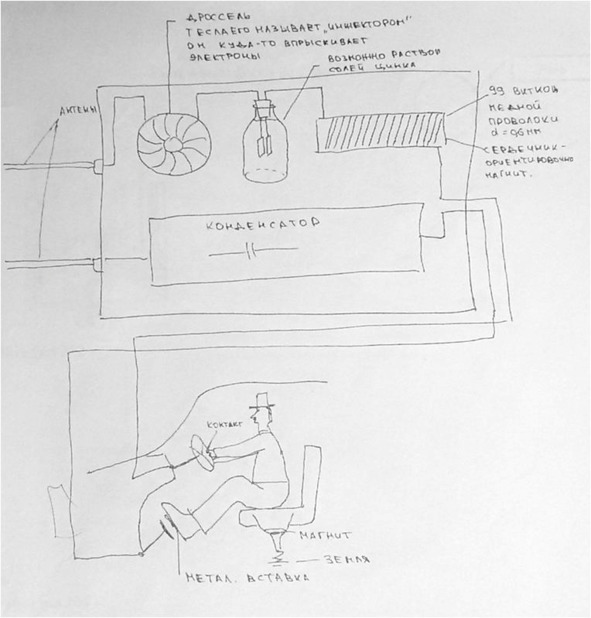 ДРОССЕЛЬ
ТЕСЛА ЕГО НАЗЫВАЕТ „ИНЖЕКТОРОМ"
ОН КУДА-ТО ВПРЫСКИВАЕТ
ЭЛЕКТРОНЫ
ВОЗМОЖНО РАСТВОР
СОЛЕЙ ЦИНКА
АНТЕНН
99 ВИТКОВ
МЕДНОЙ
ПРОВОЛОКИ
СЕРДЕЧНИК-
ОРИЕНТИРОВОЧНО
МАГНИТ.
КОНДЕНСАТОР
КОНТАКТ
МАГНИТ
ЗЕМЛЯ
МЕТАЛ. ВСТАВКА